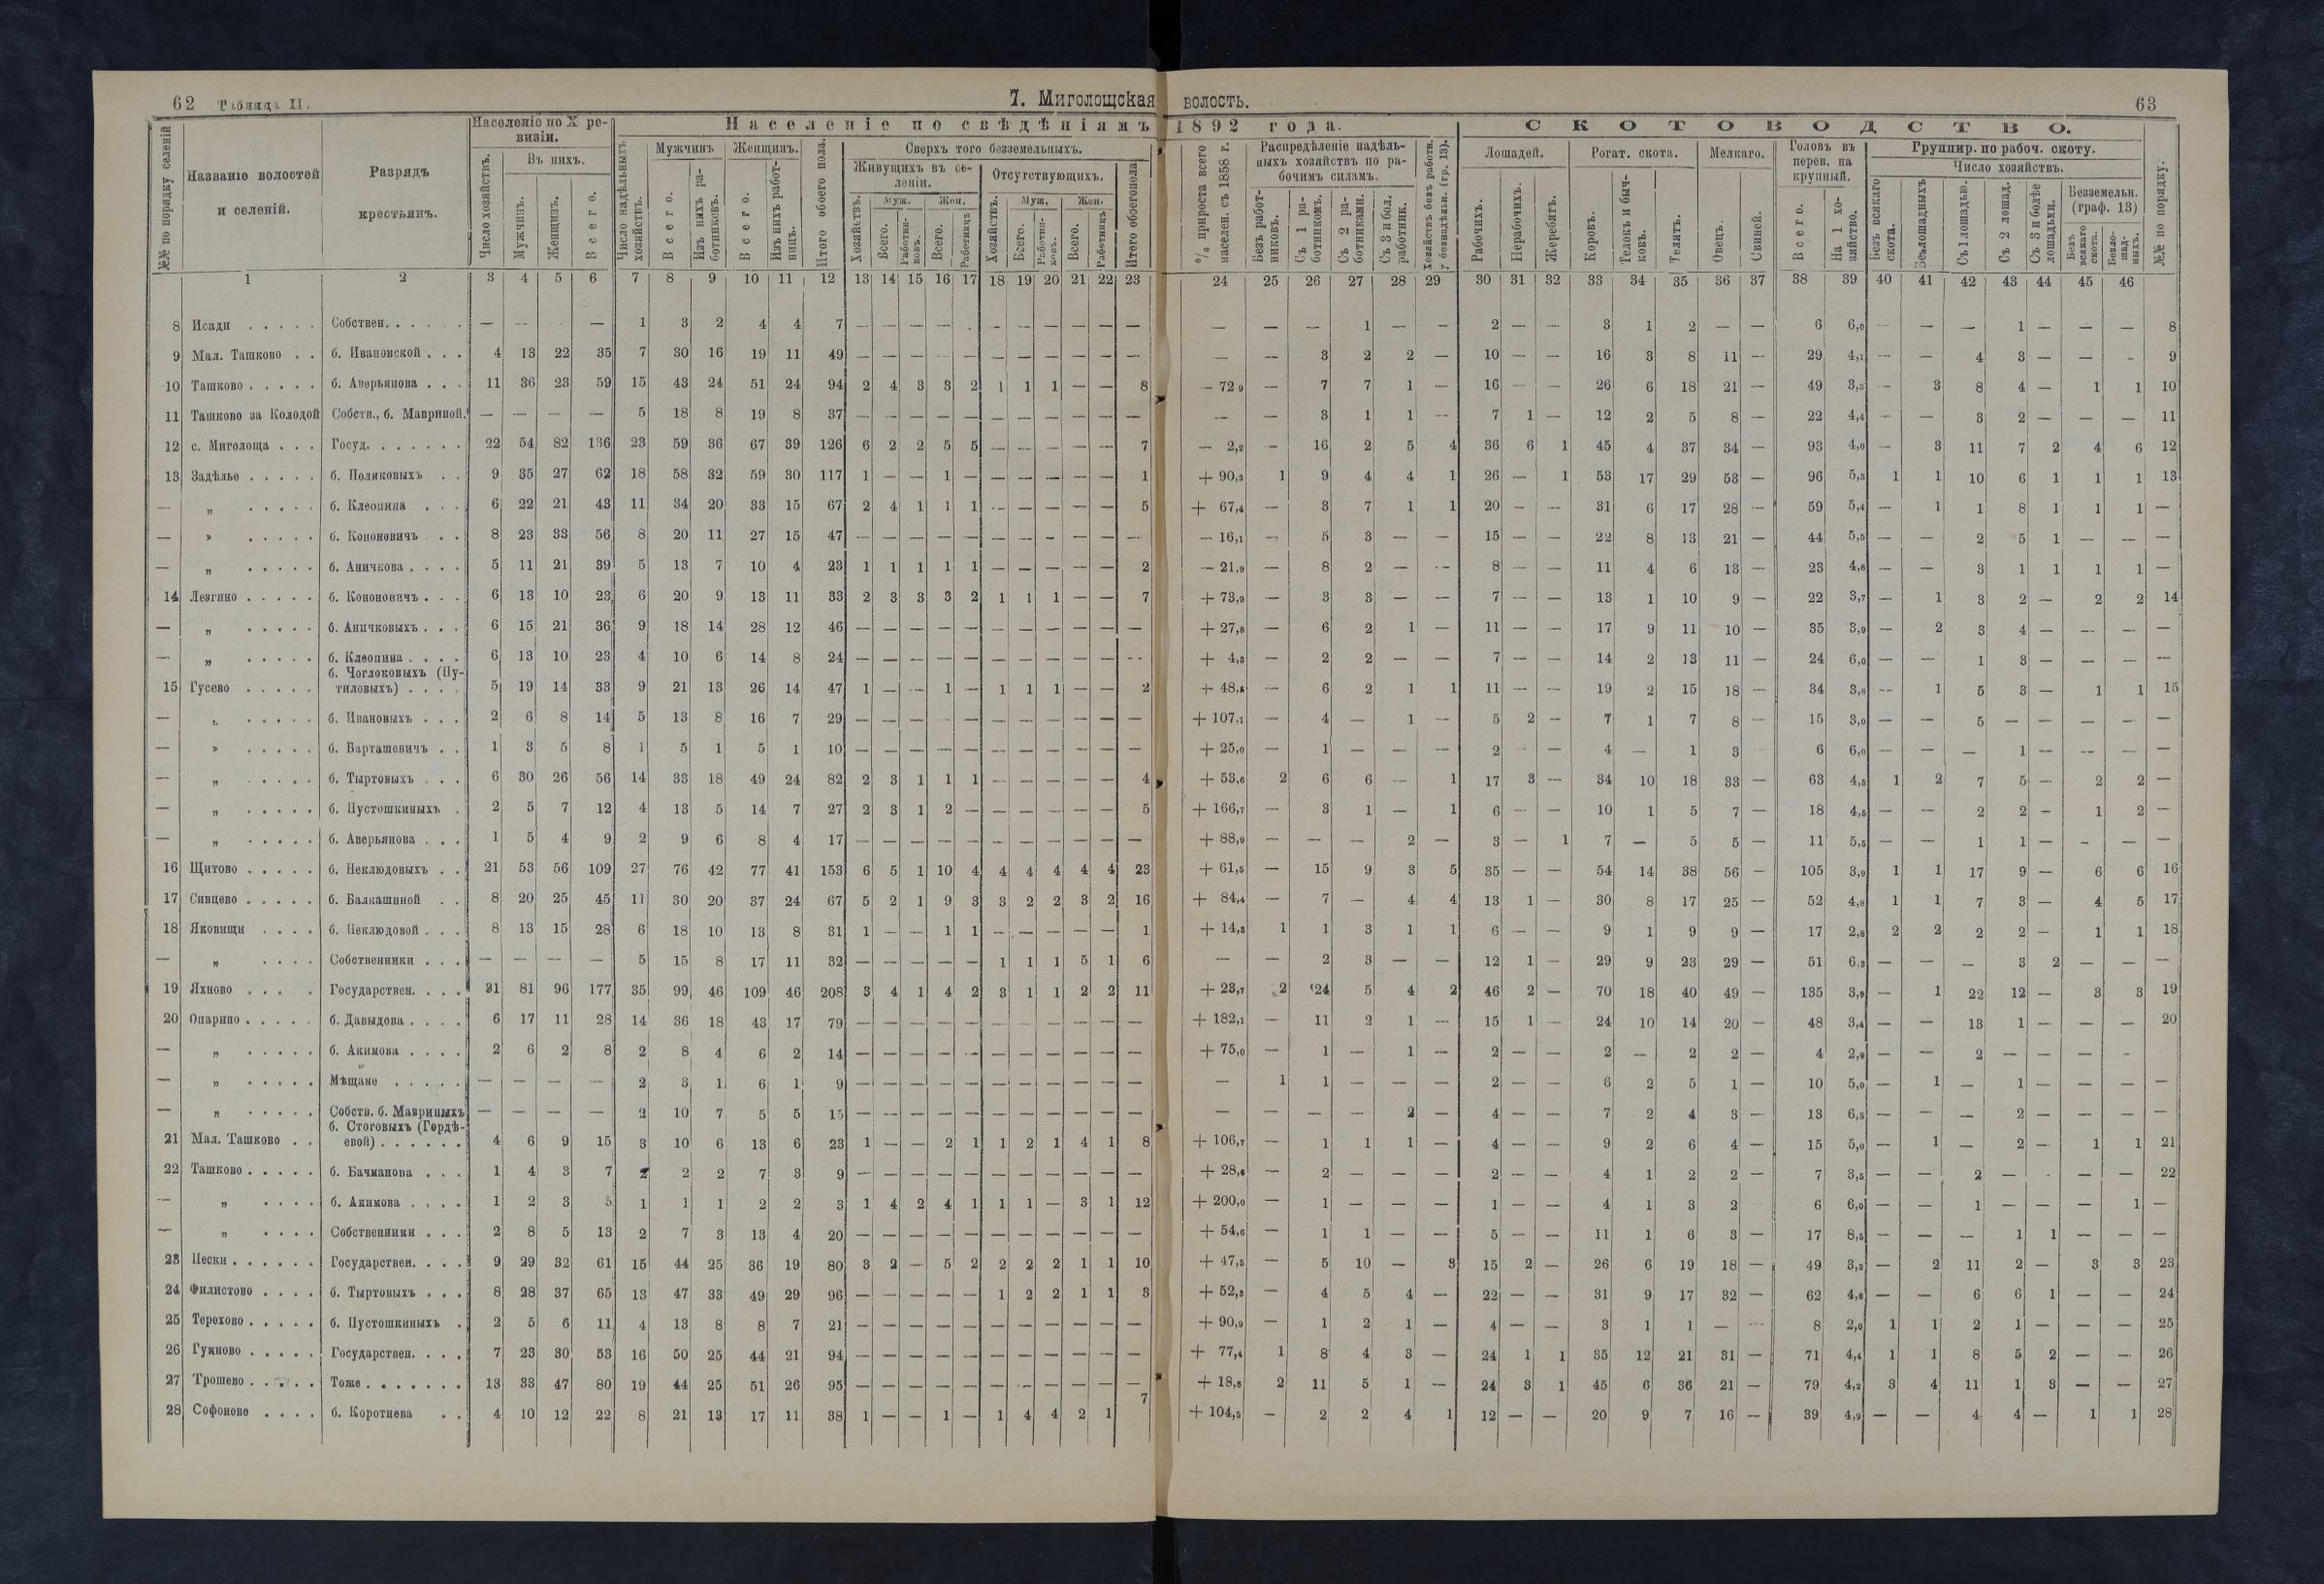 62 Таблица II.
7. Миголощская волость.
63
№№ по порядку селеній
Названіе волостей и селеній.
Разрядъ крестьянъ.
Населеніе по X ревизіи.
Число хозяйствъ.
Въ нихъ.
Мужчинъ.
Женщинъ.
Всего.
Населеніе по свѣдѣніямъ 1892 года.
Число надѣльныхъ хозяйствъ.
Мужчинъ
Всего.
Изъ нихъ работниковъ.
Женщинъ.
Всего.
Изъ нихъ работницъ.
Итого обоего пола.
Сверхъ того безземельныхъ.
Живущихъ въ селеніи.
Хозяйствъ.
Муж.
Всего.
Работниковъ.
Жен.
Всего.
Работницъ
Отсутствующихъ.
Хозяйствъ.
Муж.
Всего.
Работниковъ.
Жен.
Всего.
Работницъ
Итого обоего пола
% прироста всего населен. съ 1858 г.
Распредѣленіе надѣльныхъ хозяйствъ по рабочимъ силамъ.
Безъ работниковъ.
Съ 1 работникомъ.
Съ 2 работниками.
Съ 3 и бол. работник.
Хозяйствъ безъ работн. у безнадѣльн. (гр. 13).
СКОТОВОДСТВО.
Лошадей.
Рабочихъ.
Нерабочихъ.
Жеребятъ.
Рогат. скота.
Коровъ.
Телокъ и бычковъ.
Телятъ.
Мелкаго.
Овецъ.
Свиней.
Головъ въ перев. на крупный.
Всего.
На 1 хозяйство.
Группир. по рабоч. скоту.
Число хозяйствъ.
Безъ всякаго скота.
Безлошадныхъ
Съ 1 лошадью.
Съ 2 лошад.
Съ 3 и болѣе лошадьми.
Безземельн. (граф. 13)
Безъ всякаго скота.
Безлошадныхъ.
№№ по порядку.
1 2 3 4 5 6 7 8 9 10 11 12 13 14 15 16 17 18 19 20 21 22 23 24 25 26 27 28 29 30 31 32 33 34 35 36 37 38 39 40 41 42 43 44 45 46
8 Исади Собствен. — — — — 1 3 2 4 4 7 — — — — — — — — — — — — — — 1 — — 2 — — 3 1 2 — — 6 6,0 — — — 1 — — — 8
9 Мал. Ташково б. Ивановской 4 13 22 35 7 30 16 19 11 49 — — — — — — — — — — — — — 3 2 2 — 10 — — 16 3 8 11 — 29 4,1 — — 4 3 — — — 9
10 Ташково б. Аверьянова 11 36 23 59 15 43 24 51 24 94 2 4 3 3 2 1 1 1 — — 8 — 72 9 — 7 7 1 — 16 — — 26 6 18 21 — 49 3,3 — 3 8 4 — 1 1 10
11 Ташково за Колодой Собств., б. Мавриной. — — — — 5 18 8 19 8 37 — — — — — — — — — — — — — 3 1 1 — 7 1 — 12 2 5 8 — 22 4,4 — — 3 2 — — — 11
12 с. Миголоща Госуд. 22 54 82 136 23 59 36 67 39 126 6 2 2 5 5 — — — — — 7 — 2,2 — 16 2 5 4 36 6 1 45 4 37 34 — 93 4,0 — 3 11 7 2 4 6 12
13 Задѣлье б. Поляковыхъ 9 35 27 62 18 58 32 59 30 117 1 — — 1 — — — — — — 1 + 90,3 1 9 4 4 1 26 — 1 53 17 29 53 — 96 5,3 1 1 10 6 1 1 1 13
— „ б. Клеопина 6 22 21 43 11 34 20 33 15 67 2 4 1 1 1 — — — — — 5 + 67,4 — 3 7 1 1 20 — — 31 6 17 28 — 59 5,4 — 1 1 8 1 1 1 —
— „ б. Кононовичъ 8 23 33 56 8 20 11 27 15 47 — — — — — — — — — — — — 16,1 — 5 3 — — 15 — — 22 8 13 21 — 44 5,5 — — 2 5 1 — — —
— „ б. Аничкова 5 11 21 39 5 13 7 10 4 23 1 1 1 1 1 — — — — — 2 — 21,9 — 8 2 — — 8 — — 11 4 6 13 — 23 4,6 — — 3 1 1 1 1 —
14 Лезгино б. Кононовичъ 6 13 10 23 6 20 9 13 11 33 2 3 3 3 2 1 1 1 — — 7 + 73,9 — 3 3 — — 7 — — 13 1 10 9 — 22 3,7 — 1 3 2 — 2 2 14
— „ б. Аничковыхъ 6 15 21 36 9 18 14 28 12 46 — — — — — — — — — — — + 27,8 — 6 2 1 — 11 — — 17 9 11 10 — 35 3,9 — 2 3 4 — — — —
— „ б. Клеопина 6 13 10 23 4 10 6 14 8 24 — — — — — — — — — — — + 4,3 — 2 2 — — 7 — — 14 2 13 11 — 24 6,0 — — 1 3 — — — —
б. Чоглоковыхъ (Пу-
15 Гусево тиловыхъ) 5 19 14 33 9 21 13 26 14 47 1 — — 1 — 1 1 1 — — 2 + 48,5 — 6 2 1 1 11 — — 19 2 15 18 — 34 3,8 — 1 5 3 — 1 1 15
— „ б. Ивановыхъ 2 6 8 14 5 13 8 16 7 29 — — — — — — — — — — — + 107,1 — 4 — 1 — 5 2 — 7 1 7 8 — 15 3,0 — — 5 — — — — —
— „ б. Барташевичъ 1 3 5 8 1 5 1 5 1 10 — — — — — — — — — — — + 25,0 — 1 — — — 2 — — 4 — 1 3 — 6 6,0 — — — 1 — — — —
— „ б. Тыртовыхъ 6 30 26 56 14 33 18 49 24 82 2 3 1 1 1 — — — — — 4 + 53,6 2 6 6 — 1 17 3 — 34 10 18 33 — 63 4,5 1 2 7 5 — 2 2 —
— „ б. Пустошкиныхъ 2 5 7 12 4 13 5 14 7 27 2 3 1 2 — — — — — — 5 + 166,7 — 3 1 — 1 6 — — 10 1 5 7 — 18 4,5 — — 2 2 — 1 2 —
— „ б. Аверьянова 1 5 4 9 2 9 6 8 4 17 — — — — — — — — — — — + 88,9 — — — 2 — 3 — 1 7 — 5 5 — 11 5,5 — — 1 1 — — — —
16 Щитово б. Неклюдовыхъ 21 53 56 109 27 76 42 77 41 153 6 5 1 10 4 4 4 4 4 4 23 + 61,5 — 15 9 3 5 35 — — 54 14 38 56 — 105 3,9 1 1 17 9 — 6 6 16
17 Сивцево б. Балкашиной 8 20 25 45 11 30 20 37 24 67 5 2 1 9 3 3 2 2 3 2 16 + 84,4 — 7 — 4 4 13 1 — 30 8 17 25 — 52 4,8 1 1 7 3 — 4 5 17
18 Яковищи б. Неклюдовой 8 13 15 28 6 18 10 13 8 31 1 — — 1 1 — — — — — 1 + 14,3 1 1 3 1 1 6 — — 9 1 9 9 — 17 2,8 2 2 2 2 — 1 1 18
— „ Собственники — — — — 5 15 8 17 11 32 — — — — — 1 1 1 5 1 6 — — 2 3 — — 12 1 — 29 9 23 29 — 51 6,3 — — — 3 2 — — —
19 Яхново Государствен. 31 81 96 177 35 99 46 109 46 208 3 4 1 4 2 3 1 1 2 2 11 + 23,7 2 24 5 4 2 46 2 — 70 18 40 49 — 135 3,9 — 1 22 12 — 3 3 19
20 Опарино б. Давыдова 6 17 11 28 14 36 18 43 17 79 — — — — — — — — — — — + 182,1 — 11 2 1 — 15 1 — 24 10 14 20 — 48 3,4 — — 13 1 — — — 20
— „ б. Акимова 2 6 2 8 2 8 4 6 2 14 — — — — — — — — — — — + 75,0 — 1 — 1 — 2 — — 2 — 2 2 — 4 2,0 — — 2 — — — —
— „ Мѣщане — — — — 2 3 1 6 1 9 — — — — — — — — — — — — 1 1 — — — 2 — — 6 2 5 1 — 10 5,0 — 1 — 1 — — — —
— „ Собств. б. Мавриныхъ — — — — 2 10 7 5 5 15 — — — — — — — — — — — — — — — 2 — 4 — — 7 2 4 3 — 13 6,5 — — — 2 — — — —
б. Стоговыхъ (Гордѣ-
21 Мал. Ташково евой) 4 6 9 15 3 10 6 13 6 23 1 — — 2 1 1 2 1 4 1 8 + 106,7 — 1 1 1 — 4 — — 9 2 6 4 — 15 5,0 — 1 — 2 — 1 1 21
22 Ташково б. Бачманова 1 4 3 7 2 2 2 7 3 9 — — — — — — — — — — — + 28,6 — 2 — — — 2 — — 4 1 2 2 — 7 3,5 — — 2 — — — — 22
— „ б. Акимова 1 2 3 5 1 1 1 2 2 3 1 4 2 4 1 1 1 — 3 1 12 + 200,0 — 1 — — — 1 — — 4 1 3 2 6 6,0 — — 1 — — — 1 —
— „ Собственники 2 8 5 13 2 7 3 13 4 20 — — — — — — — — — — — + 54,6 — 1 1 — — 5 — — 11 1 6 3 — 17 8,5 — — — 1 1 — — —
23 Пески Государствен. 9 29 32 61 15 44 25 36 19 80 3 2 — 5 2 2 2 2 1 1 10 + 47,5 — 5 10 — 3 15 2 — 26 6 19 18 — 49 3,3 — 2 11 2 — 3 3 23
24 Филистово б. Тыртовыхъ 8 28 37 65 13 47 33 49 29 96 — — — — — 1 2 2 1 1 3 + 52,3 — 4 5 4 — 22 — — 31 9 17 32 — 62 4,8 — — 6 6 1 — — 24
25 Терехово б. Пустошкиныхъ 2 5 6 11 4 13 8 8 7 21 — — — — — — — — — — — + 90,9 — 1 2 1 — 4 — — 3 1 1 — — 8 2,0 1 1 2 1 — — — 25
26 Гужново Государствен. 7 23 30 53 16 50 25 44 21 94 — — — — — — — — — — — + 77,4 1 8 4 3 — 24 1 1 35 12 21 31 — 71 4,4 1 1 8 5 2 — — 26
27 Трошево Тоже 13 33 47 80 19 44 25 51 26 95 — — — — — — — — — — — + 18,8 2 11 5 1 — 24 3 1 45 6 36 21 — 79 4,2 3 4 11 1 3 — — 27
28 Софоново б. Коротнева 4 10 12 22 8 21 13 17 11 38 1 — — 1 — 1 4 4 2 1 7 + 104,5 — 2 2 4 1 12 — — 20 9 7 16 — 39 4,9 — — 4 4 — 1 1 28